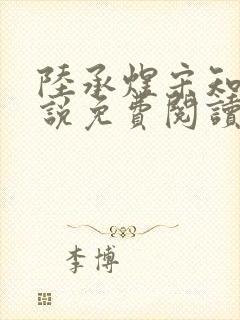 陸承煋宋知
說免費閱讀
李博